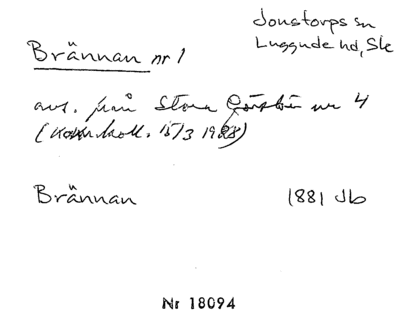 Jonstorps sn
Luggude hd, Sk
Brännan nr 1
avs. från Stora nr 4
15/3
Brännan 1881 Jb
Nr 18094